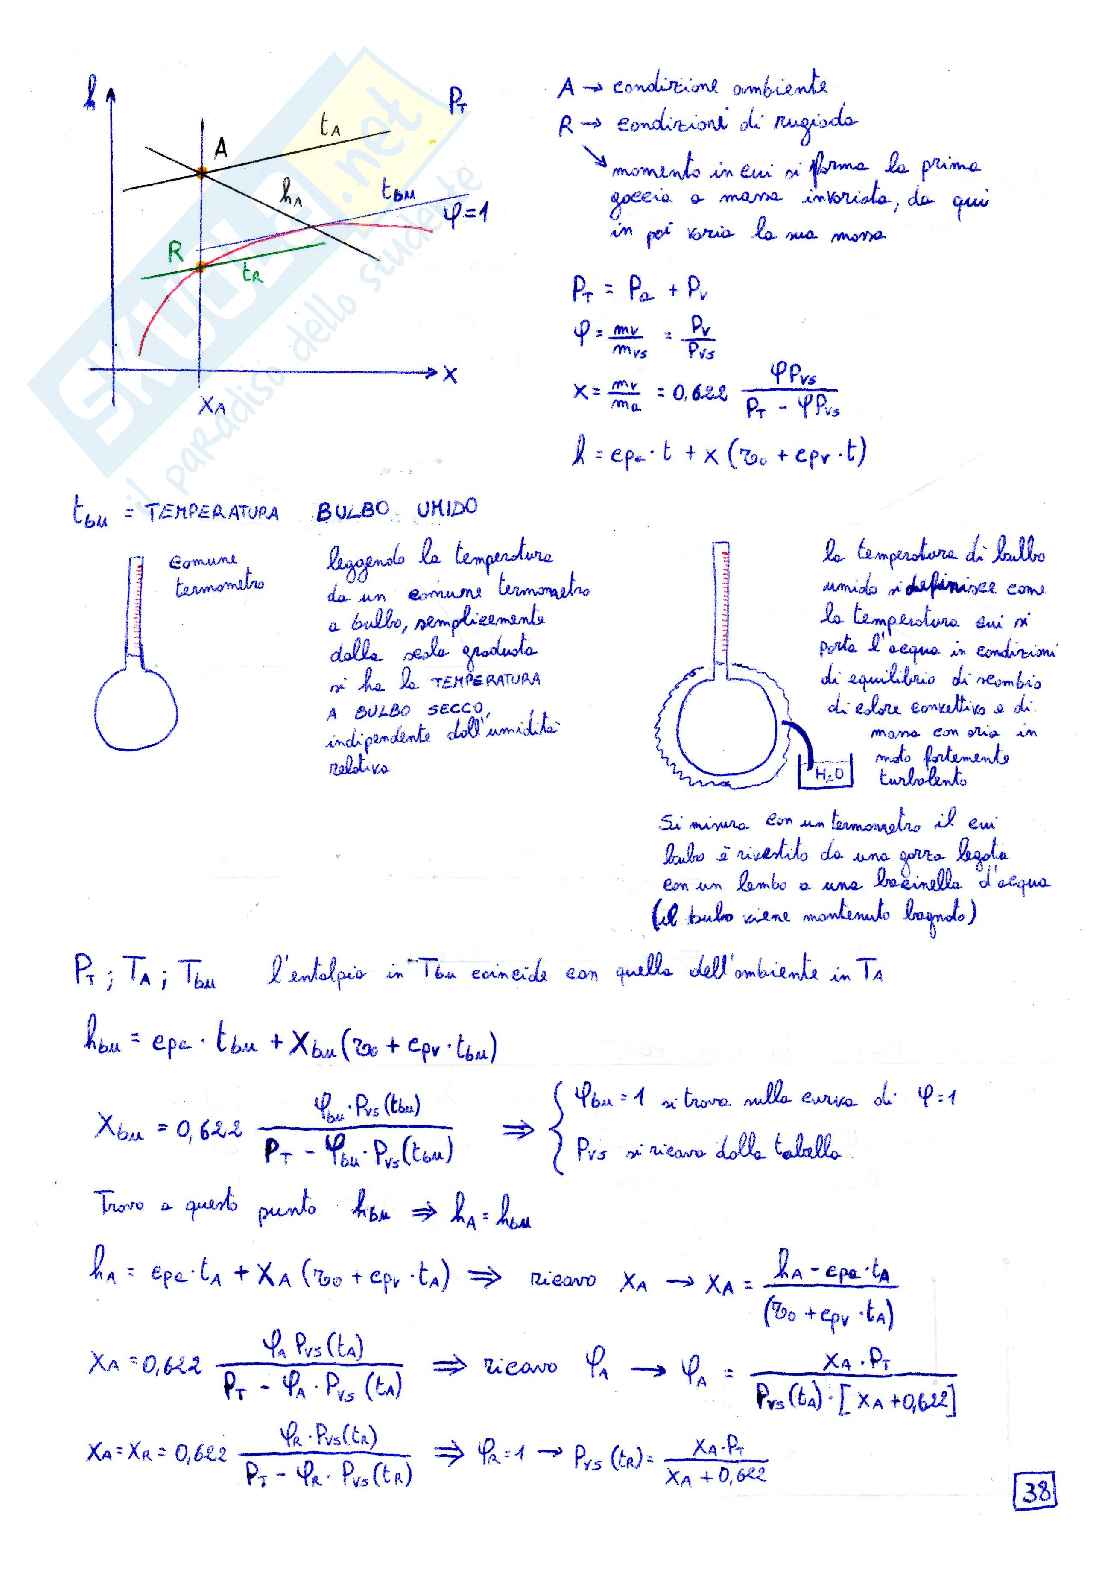 h
P_T
t_A
A
h_A
t_bu
φ=1
R
t_R
x
x_A
SKUOLA.net
il paradiso dello studente
A → condizione ambiente
R → condizioni di rugiada
momento in cui si forma la prima
goccia a massa invariata, da qui
in poi varia la sua massa
P_T = P_a + P_v
φ = m_v / m_vs = P_v / P_vs
x = m_v / m_a = 0,622 φP_vs / (P_T - φP_vs)
h = cpa · t + x (r_0 + cpv · t)
t_bu = TEMPERATURA BULBO UMIDO
comune
termometro
leggendo la temperatura
da un comune termometro
a bulbo, semplicemente
dalla scala graduata
si ha la TEMPERATURA
A BULBO SECCO,
indipendente dall'umidità
relativa
la temperatura di bulbo
umido si definisce come
la temperatura cui si
porta l'acqua in condizioni
di equilibrio di scambio
di calore convettivo e di
massa con aria in
moto fortemente
turbolento
H2O
Si misura con un termometro il cui
bulbo è rivestito da una garza legata
con un lembo a una bacinella d'acqua
(il bulbo viene mantenuto bagnato)
P_T ; T_A ; T_bu l'entalpia in T_bu coincide con quella dell'ambiente in T_A
h_bu = cpa · t_bu + x_bu (r_0 + cpv · t_bu)
x_bu = 0,622 φ_bu · P_vs(t_bu) / (P_T - φ_bu · P_vs(t_bu)) ⇒ { φ_bu = 1 si trova sulla curva di φ=1
P_vs si ricava dalla tabella
Trovo a questo punto h_bu ⇒ h_A = h_bu
h_A = cpa · t_A + x_A (r_0 + cpv · t_A) ⇒ ricavo x_A → x_A = (h_A - cpa · t_A) / (r_0 + cpv · t_A)
x_A = 0,622 φ_A P_vs(t_A) / (P_T - φ_A · P_vs(t_A)) ⇒ ricavo φ_A → φ_A = x_A · P_T / (P_vs(t_A) · [x_A + 0,622])
x_A = x_R = 0,622 φ_R · P_vs(t_R) / (P_T - φ_R · P_vs(t_R)) ⇒ φ_R = 1 → P_vs(t_R) = x_A · P_T / (x_A + 0,622)
38